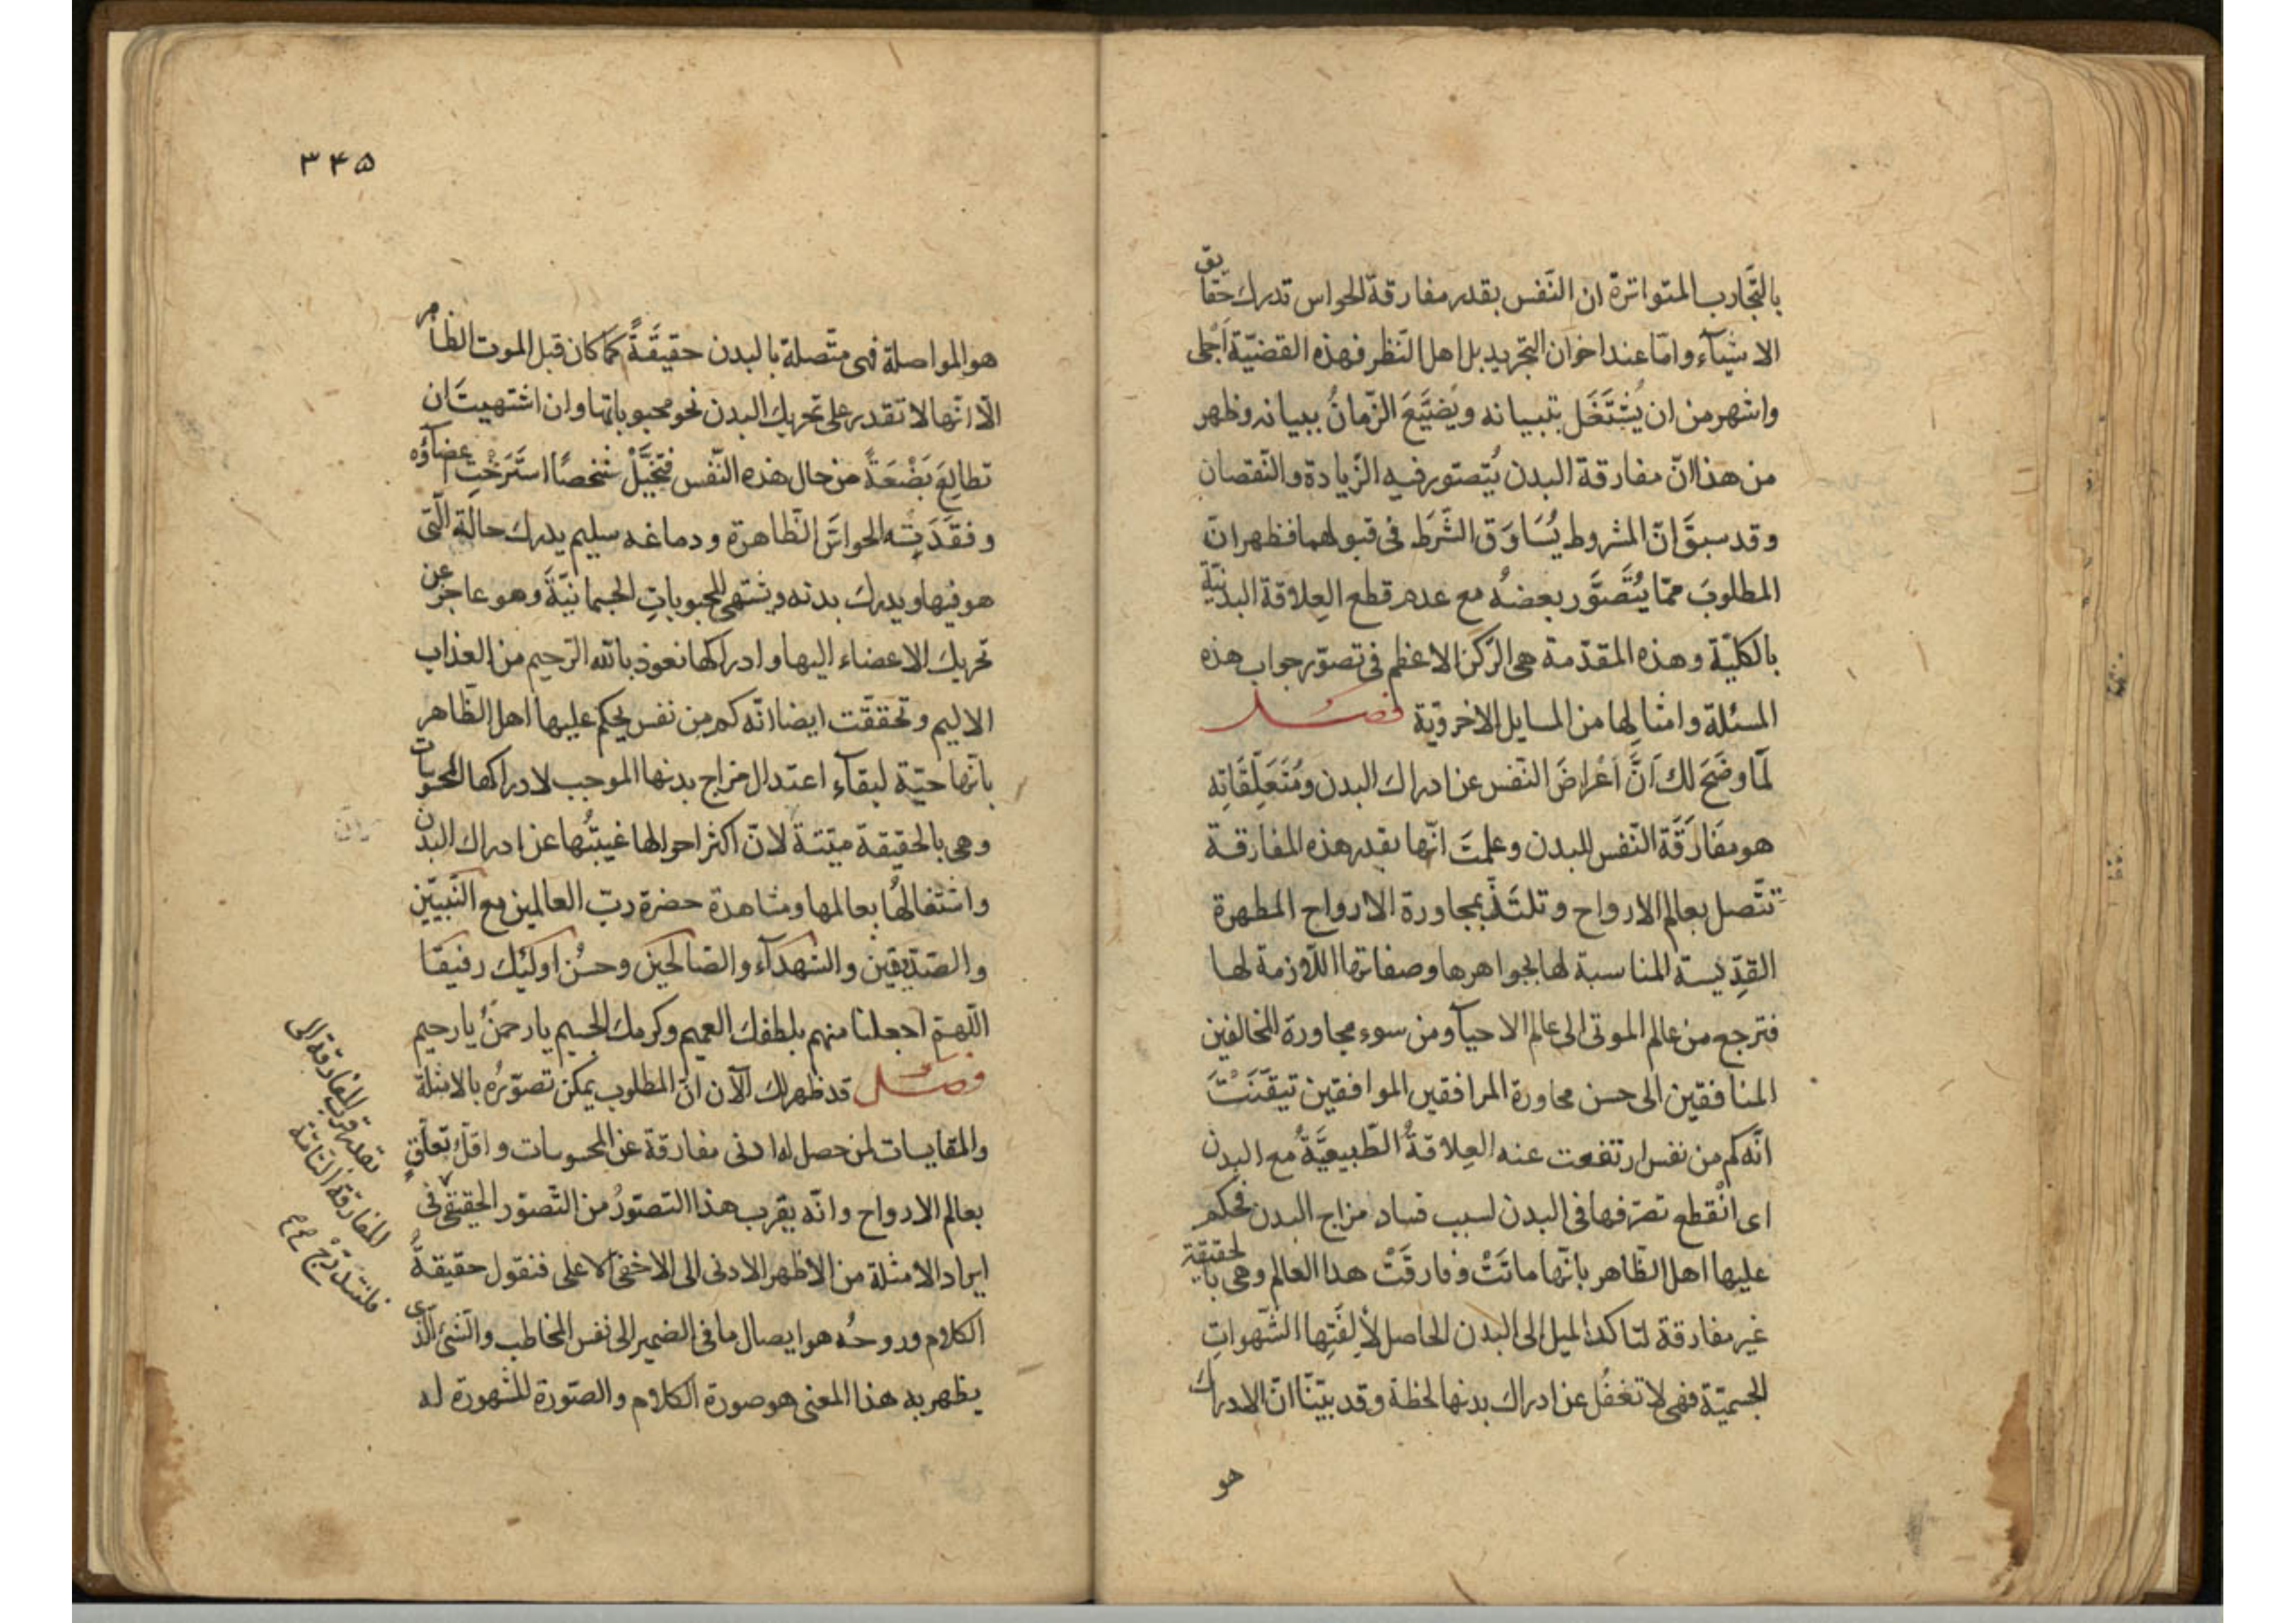 بالتَّجارب المتواترة ان النّفس بقدر مفارقة الحواس تدرك حقايق
الاشيآء وامّا عند اخوان التّجريد بل اهل النّظر فهذه القضيّة اَجْلى
واشهر من ان يُشْتَغَل بتبيانه ويُضَيَّعَ الزّمانُ ببيانه وظهر
من هذا انّ مفارقة البدن يُتصتور فيه الزّيادة والنّقصان
وقد سبقَ انّ المشروط يُسَاوَق الشَّرَط فى قبولهما فظهر انّ
المطلوبَ ممّا يُتَصَوَّر بعضهُ مع عدم قطع العِلاقة البدنيّة
بالكليّة وهذه المقدّمة هى الرّكن الاعظم فى تصوّر جواب هذه
المسئلة وامثالِها من المسايل الاخرويّة فصل
لَمّا وضَحَ لك اَنَّ اَعْراضَ النّفس عن ادراك البدن ومُتَعَلِّقَاتِه
هو مفَارَقَة النّفس للبدن وعلمتَ انّها بقدر هذه المفارقة
تتّصل بعالم الارواح وتلتَذّ بمجاورة الارواح المطهرة
القدِّيسة المناسبة لها بجواهرها وصفاتها اللّازمة لها
فترجع من عالم الموتى الى عالم الاحيآء ومن سوء مجاورة المخالفين
المنافقين الى حسن مجاورة المرافقين الموافقين تيقّنَتْ
انّه كم من نفس ارتفعت عنه العِلاقةُ الطّبيعيَّةُ مع البدن
اى انْقطع تصرّفها فى البدن لسبب فساد مزاج البدن فحكم
عليها اهل الظّاهر بانّها ماتَتْ وفارقَتْ هذا العالم وهى بالحقيقة
غير مفارقة لتاكد الميل الى البدن الحاصل لأُلفَتِها الشّهواتِ
الجسميّة فهى لا تغفُل عن ادراك بدنها لحظة وقد بيّنّا انّ الادراك
هو
٣٤٥
هو المواصلة فهى متّصلة بالبدن حقيقَةً كما كان قبل الموت الظاهر
الّا انّها لا تقدر على تحريك البدن نحو محبوباتها وان اشتهيتَ ان
تطالِعَ بَضْعَةً من حال هذه النّفس فتخيَّلْ شخصًا استَرَخْتِ اعضآؤه
وفقَدَتِه الحواسّ الظّاهرة ودماغه سليم يدرك حالة الّتى
هو فيها ويدرك بدنه ويشتهى المحبوباتِ الجسمانيّة وهو عاجز عن
تحريك الاعضاء اليها وادراكها نعوذ بالله الرّحيم من العذاب
الاليم وتحققت ايضا انّه كم من نفس يحكم عليها اهل الظّاهر
بانّها حيّة لبقآء اعتدال مزاج بدنها الموجب لادراكها المحسوسات
وهى بالحقيقة ميّتة لانّ اكثر احوالها غيبتُها عن ادراك البدن
واشتغالُها بعالمها ومشاهدة حضرة ربّ العالمين مع النّبيّين
والصّدّيقين والشهدآء والصّالحين وحسُن اولئك رفيقا
اللّهمّ اجعلنا منهم بلطفك العميم وكرمك الجسيم يا رحمنُ يا رحيم
فصل قد ظهر لك الآن انّ المطلوب يمكن تصوّرُه بالامثلة
والمقايسات لمن حصل له ادنى مفارقة عن المحسوسات واقلّ تعلّق
بعالم الارواح وانّه يقرب هذا التصوّرُ من التّصوّر الحقيقى فى
ايراد الامثلة من الاظهر الادنى الى الاخفى الاعلى فنقول حقيقةُ
الكلام وروحُه هو ايصال ما فى الضمير الى نفس المخاطب والشئ الّذى
يظهر به هذا المعنى هو صورة الكلام والصّورة المشهورة له
بقدر قرب المفارقة الى
المفارقة التامّة
فلنتدرّج